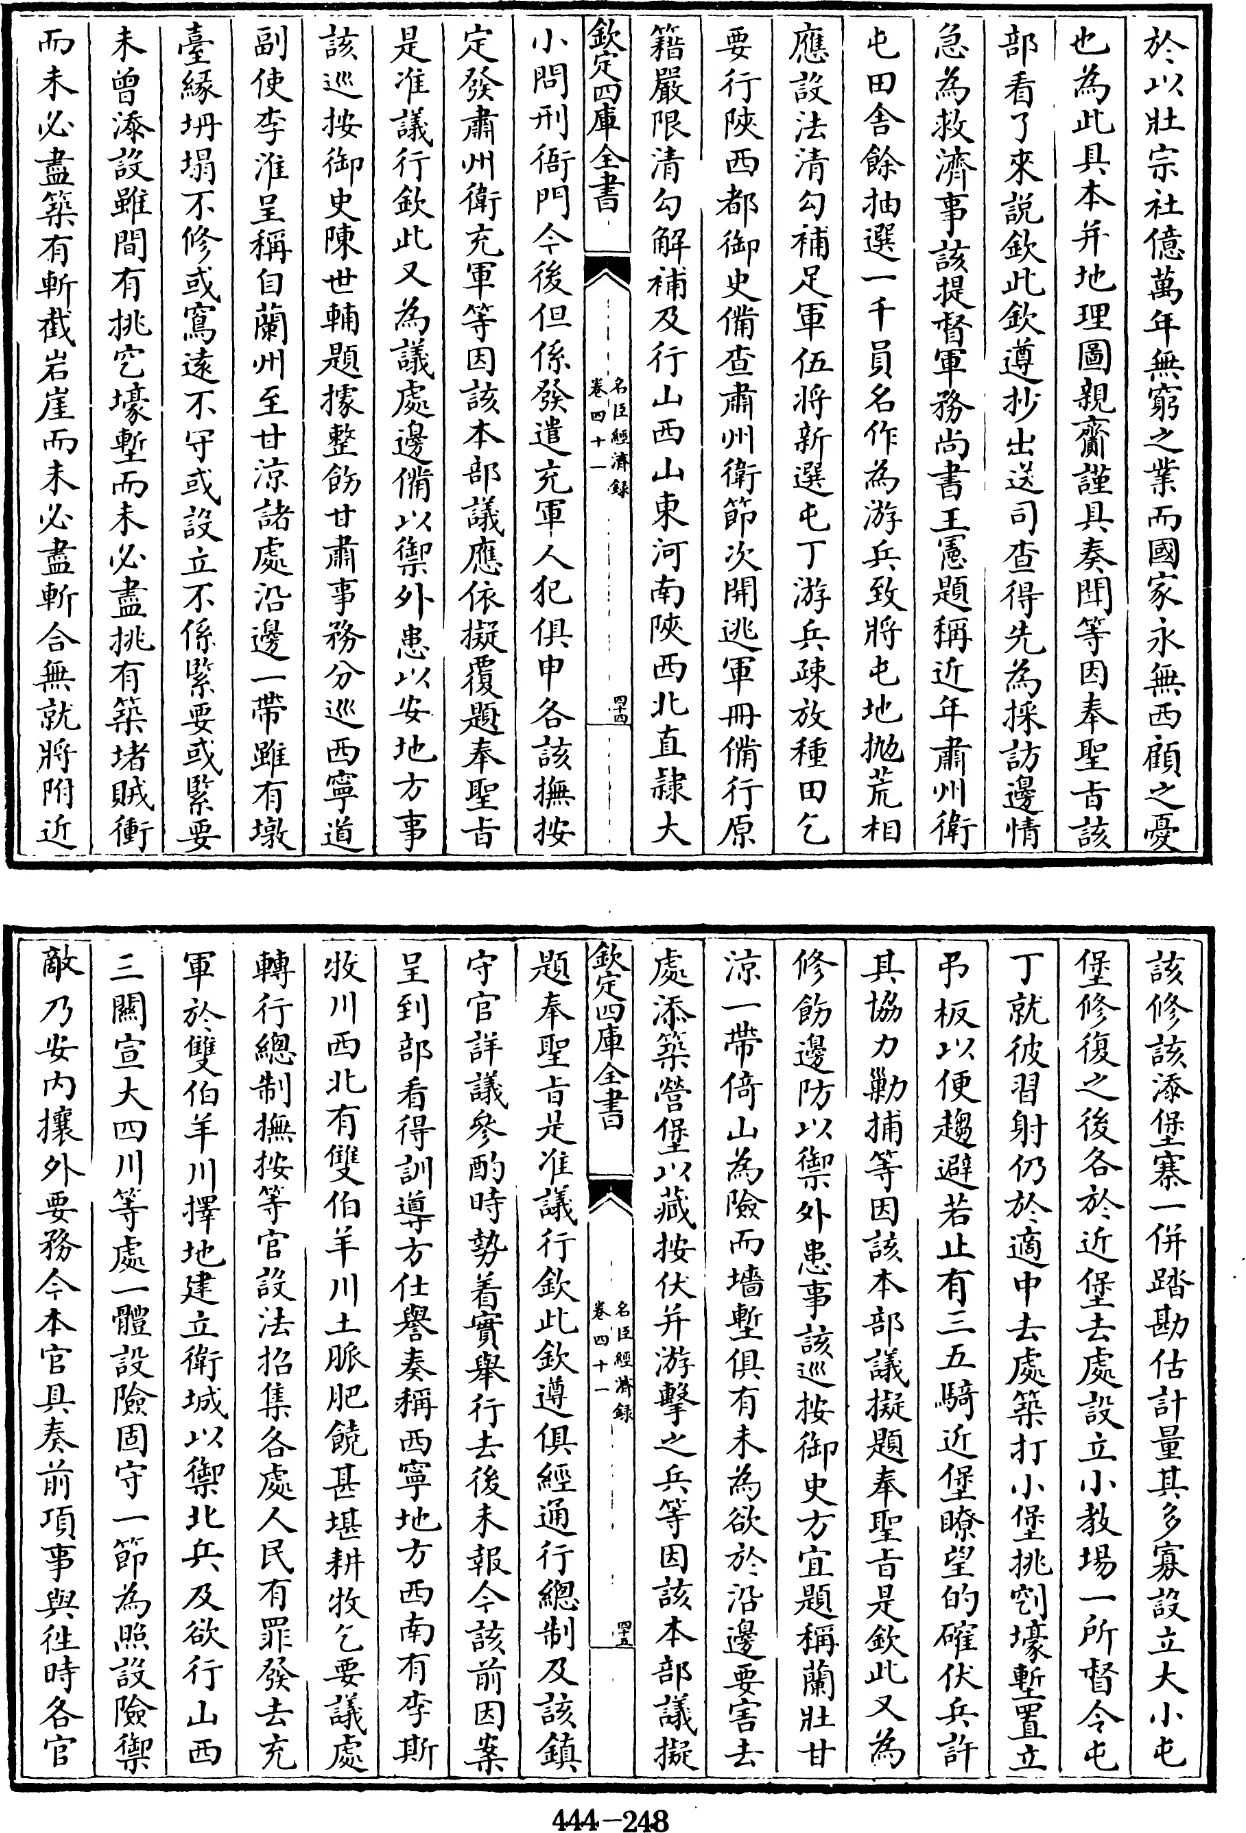 於以壯宗社億萬年無窮之業而國家永無西顧之憂
也為此具本并地理圖親齎謹具奏聞等因奉聖旨該
部看了來說欽此欽遵抄出送司查得先為採訪邊情
急為救濟事該提督軍務尚書王憲題稱近年肅州衛
屯田舍餘抽選一千員名作為游兵致將屯地拋荒相
應設法清勾補足軍伍將新選屯丁游兵疎放種田乞
要行陝西都御史備查肅州衛節次開逃軍冊備行原
籍嚴限清勾解補及行山西山東河南陝西北直隸大
欽定四庫全書
名臣經濟錄
卷四十一
四十四
小問刑衙門今後但係發遣充軍人犯俱申各該撫按
定發肅州衛充軍等因該本部議應依擬覆題奉聖旨
是准議行欽此又為議處邊備以禦外患以安地方事
該巡按御史陳世輔題據整飭甘肅事務分巡西寧道
副使李淮呈稱自蘭州至甘涼諸處沿邊一帶雖有墩
臺緣坍塌不修或寫遠不守或設立不係緊要或緊要
未曾添設雖間有挑空壕塹而未必盡挑有築堵賊衝
而未必盡築有斬截岩崖而未必盡斬合無就將附近
該修該添堡寨一併踏勘估計量其多寡設立大小屯
堡修復之後各於近堡去處設立小教場一所督令屯
丁就彼習射仍於適中去處築打小堡挑窖壕塹置立
弔板以便趨避若止有三五騎近堡瞭望的確伏兵許
其協力勦捕等因該本部議擬題奉聖旨是欽此又為
修飭邊防以禦外患事該巡按御史方宜題稱蘭壯甘
涼一帶倚山為險而墻塹俱有未為欲於沿邊要害去
處添築營堡以藏按伏并游擊之兵等因該本部議擬
欽定四庫全書
名臣經濟錄
卷四十一
四十五
題奉聖旨是准議行欽此欽遵俱經通行總制及該鎮
守官詳議參酌時勢着實舉行去後未報今該前因案
呈到部看得訓導方仕譽奏稱西寧地方西南有李斯
牧川西北有雙伯羊川土脈肥饒甚堪耕牧乞要議處
轉行總制撫按等官設法招集各處人民有罪發去充
軍於雙伯羊川擇地建立衛城以禦北兵及欲行山西
三關宣大四川等處一體設險固守一節為照設險禦
敵乃安內攘外要務今本官具奏前項事與徃時各官
444-248